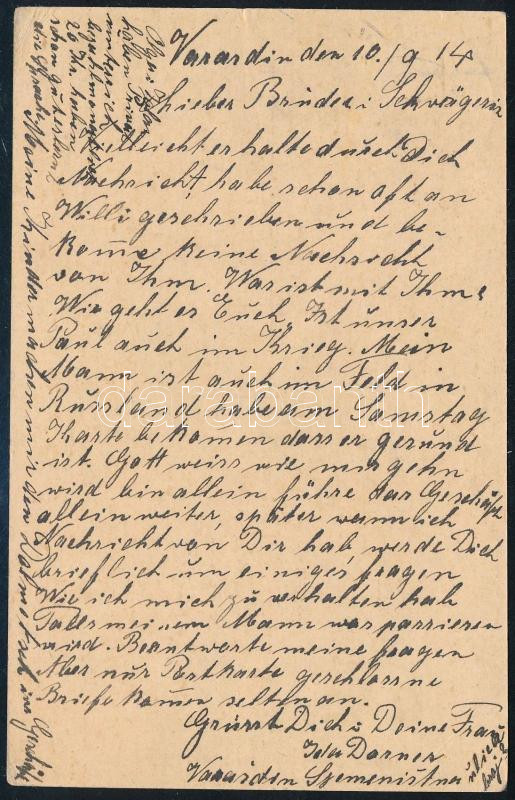 Varardin den 10./9 14
Lieber Bruder u Schwägerin
Vielleicht erhalte durch Dich
Nachricht, habe schon oft an
Willi geschrieben und be-
kome keine Nachricht
von Ihm. Was ist mit Ihm?
Wie geht es Euch. Ist unser
Paul auch im Krieg. Mein
Mann ist auch im Feld in
Russland habe am Samstag
Karte bekomen dass er gesund
ist. Gott weiss wie mirs gehn
wird bin allein führe das Geschäft
allein weiter, später wann ich
Nachricht von Dir hab, werde Dich
brieflich um einiges fragen
Wie ich mich zu verhalten hab
Falls meinem Mann was passieren
wird. Beantworte meine fragen
Aber nur Postkarte geschlossne
Briefe komen selten an.
Grüsst Dich u Deine Frau
Ida Dorner
Varardin
Meine Kinder machen mir den Dolmetsch ins
darabanth